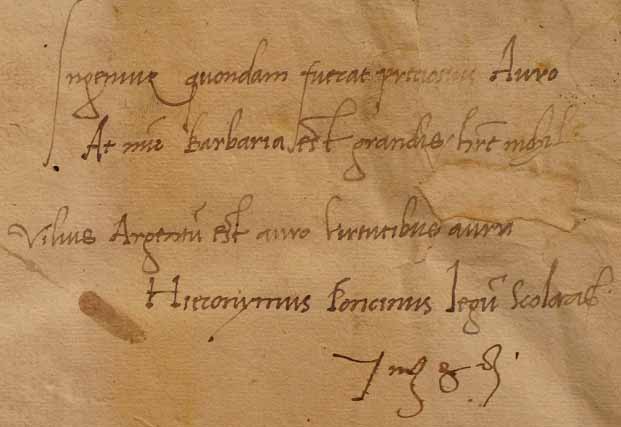 Ingenium quondam fuerat preciosius Auro
At nūc barbaria est grandis hrē nihil
Vilius Argentū est auro virtutibus aurū
Hieronymus Poncinus legū Scolaris